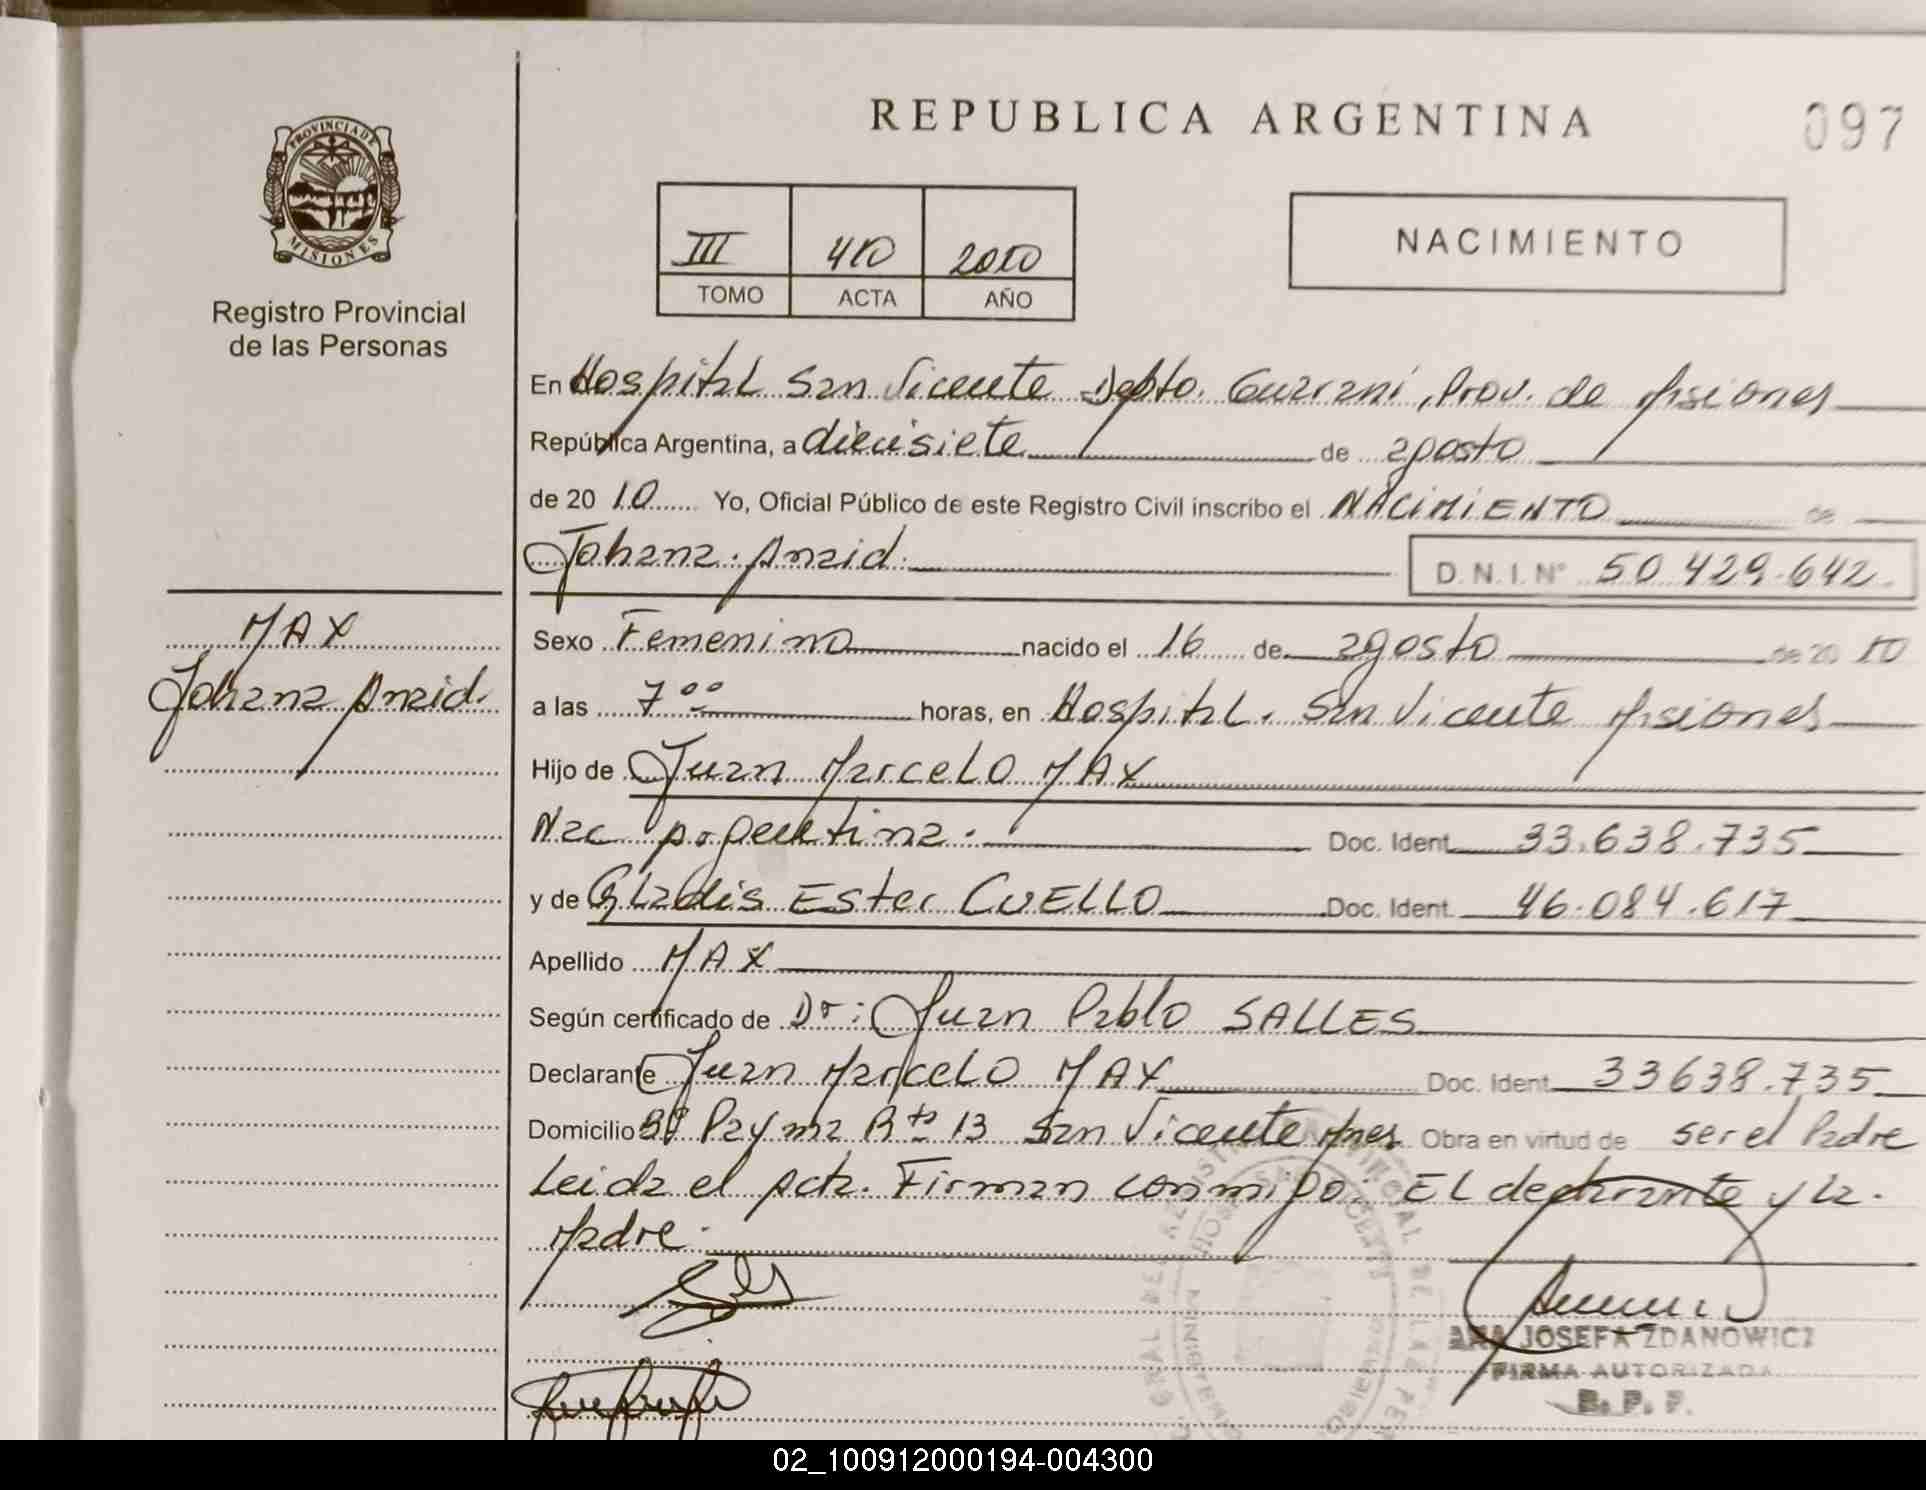 REPUBLICA ARGENTINA
097
PROVINCIA DE MISIONES
Registro Provincial
de las Personas
III 410 2010
TOMO ACTA AÑO
NACIMIENTO
En Hospital San Vicente Depto. Guarani, Prov. de Misiones
República Argentina, a diecisiete de agosto
de 2010 Yo, Oficial Público de este Registro Civil inscribo el NACIMIENTO de
Johana Anaid. D.N.I. Nº 50.429.642.
MAX
Johana Anaid.
Sexo Femenino nacido el 16 de agosto de 2010
a las 7 00 horas, en Hospital. San Vicente Misiones
Hijo de Juan Marcelo MAX
Nac Argentina. Doc. Ident. 33.638.735
y de Gladis Ester CUELLO Doc. Ident. 46.084.617
Apellido MAX
Según certificado de Dr: Juan Pablo SALLES
Declarante Juan Marcelo MAX Doc. Ident. 33638.735
Domicilio Bº Payma Rta 13 San Vicente Mnes Obra en virtud de ser el Padre
Leida el Acta. Firman conmigo. El declarante y la.
Madre.
ANA JOSEFA ZDANOWICZ
FIRMA AUTORIZADA
R. P. P.
02_100912000194-004300